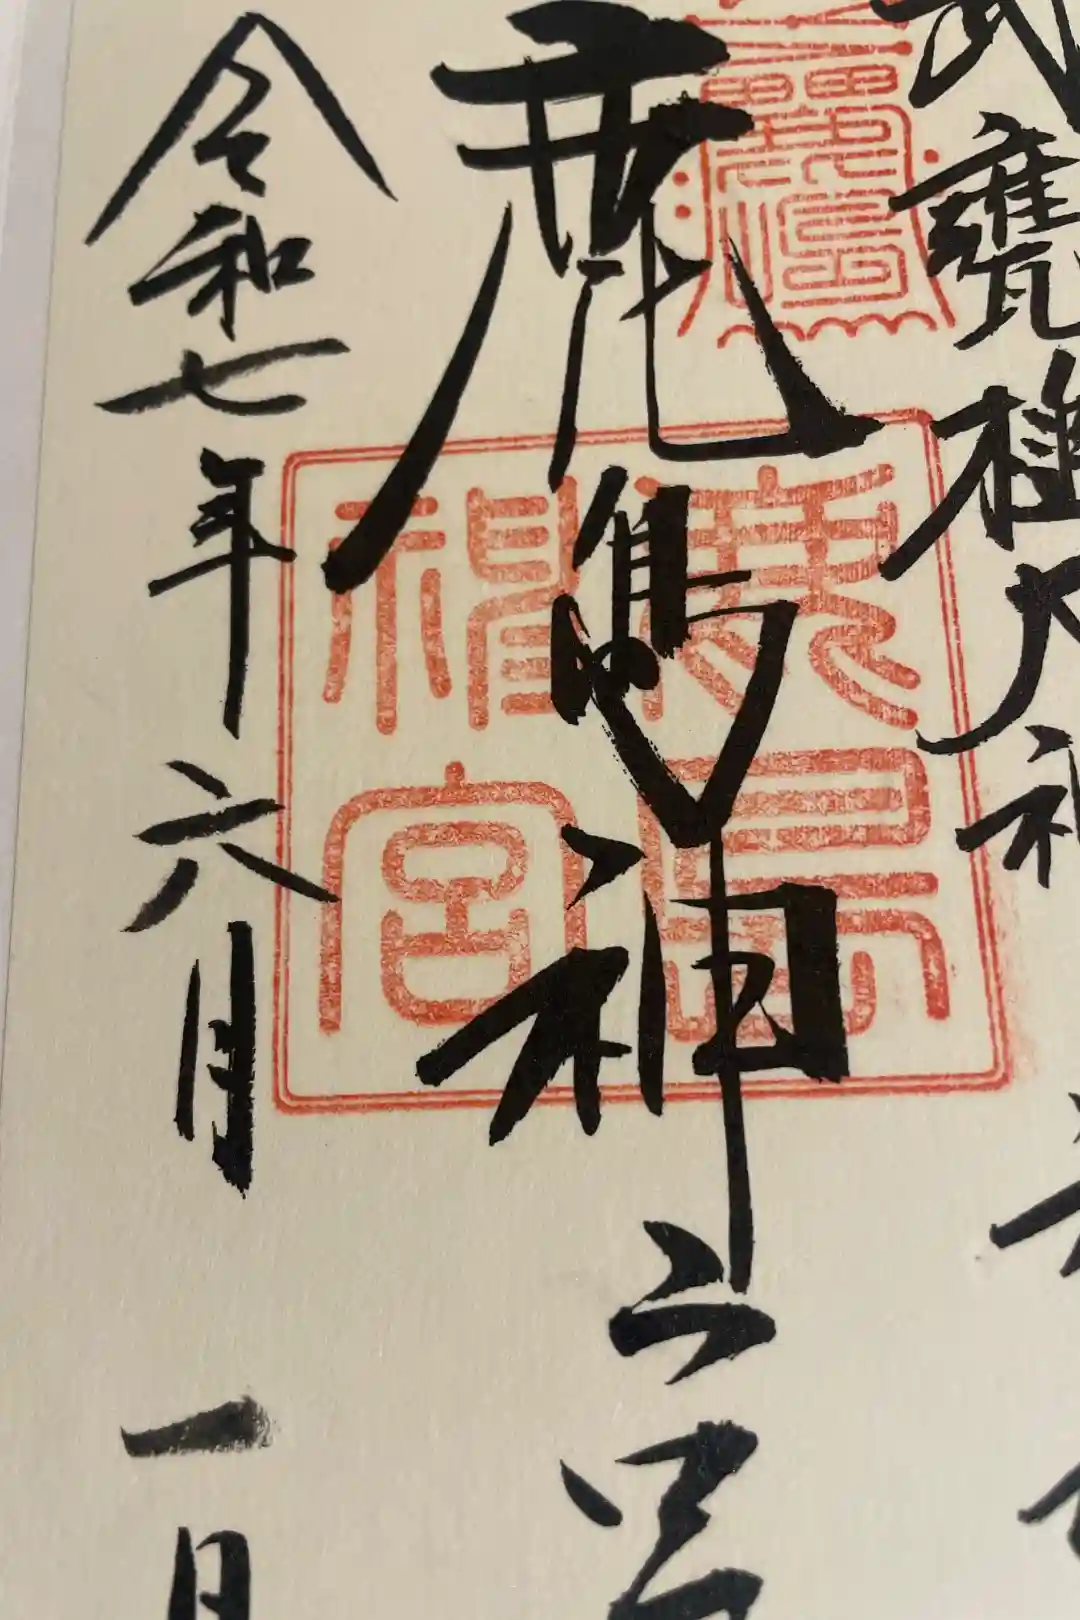 武甕槌大神
鹿島神宮
令和七年六月一日
鹿島神宮